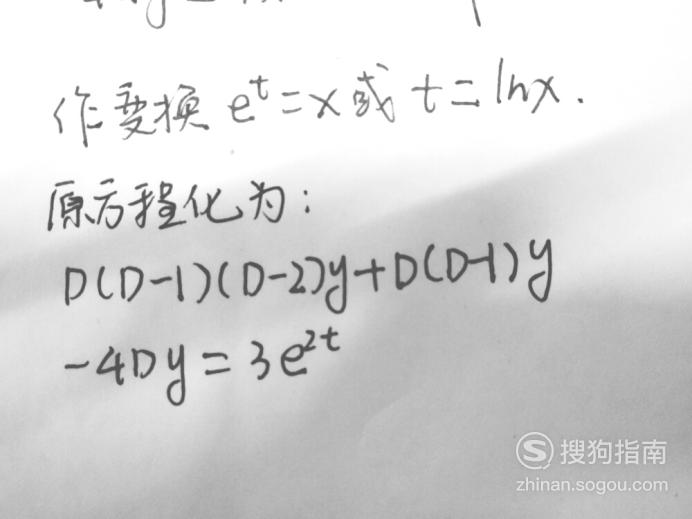 作变换 eᵗ=x或 t=lnx.
原方程化为:
D(D-1)(D-2)y+D(D-1)y
-4Dy=3e²ᵗ
S 搜狗指南
zhinan.sogou.com